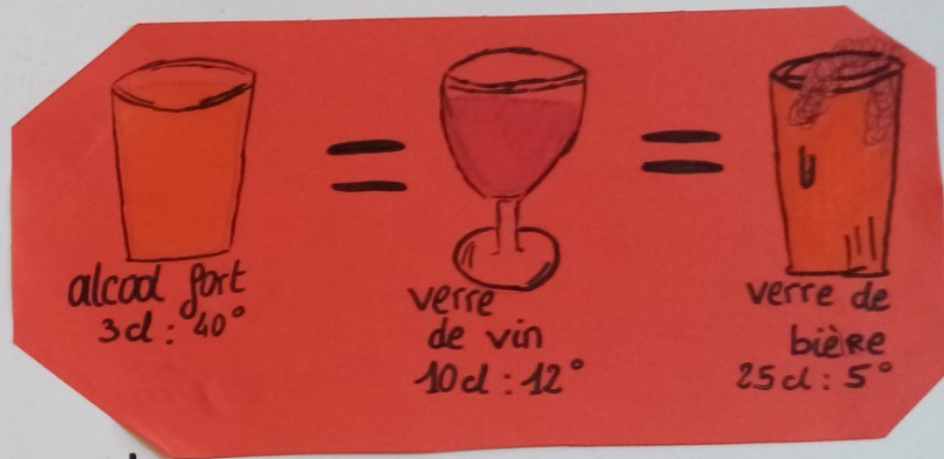 alcool fort
3cl : 40°
verre
de vin
10cl : 12°
verre de
bière
25cl : 5°